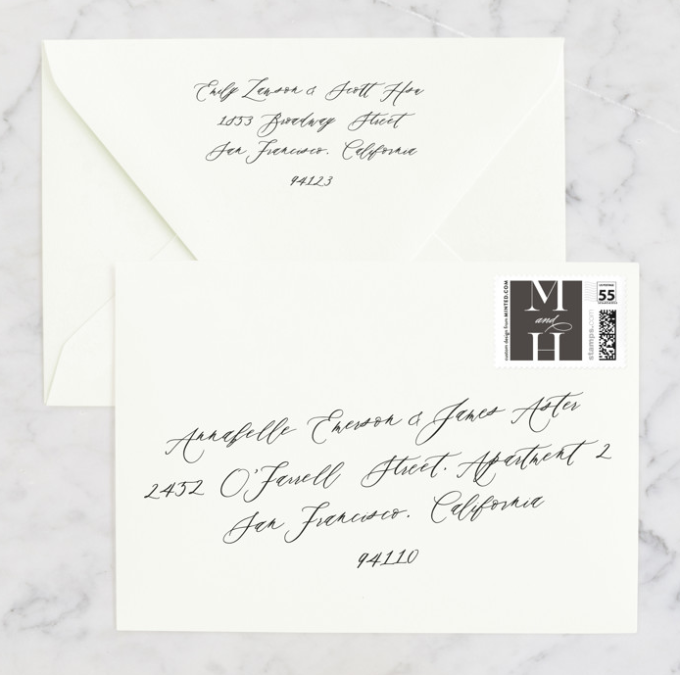 Emily Lawson & Scott Hsu
1853 Broadway Street
San Francisco, California
94123
custom design from MINTED.COM
M
and
H
55
stamps.com
Annabelle Emerson & James Aster
2452 O'Farrell Street, Apartment 2
San Francisco, California
94110